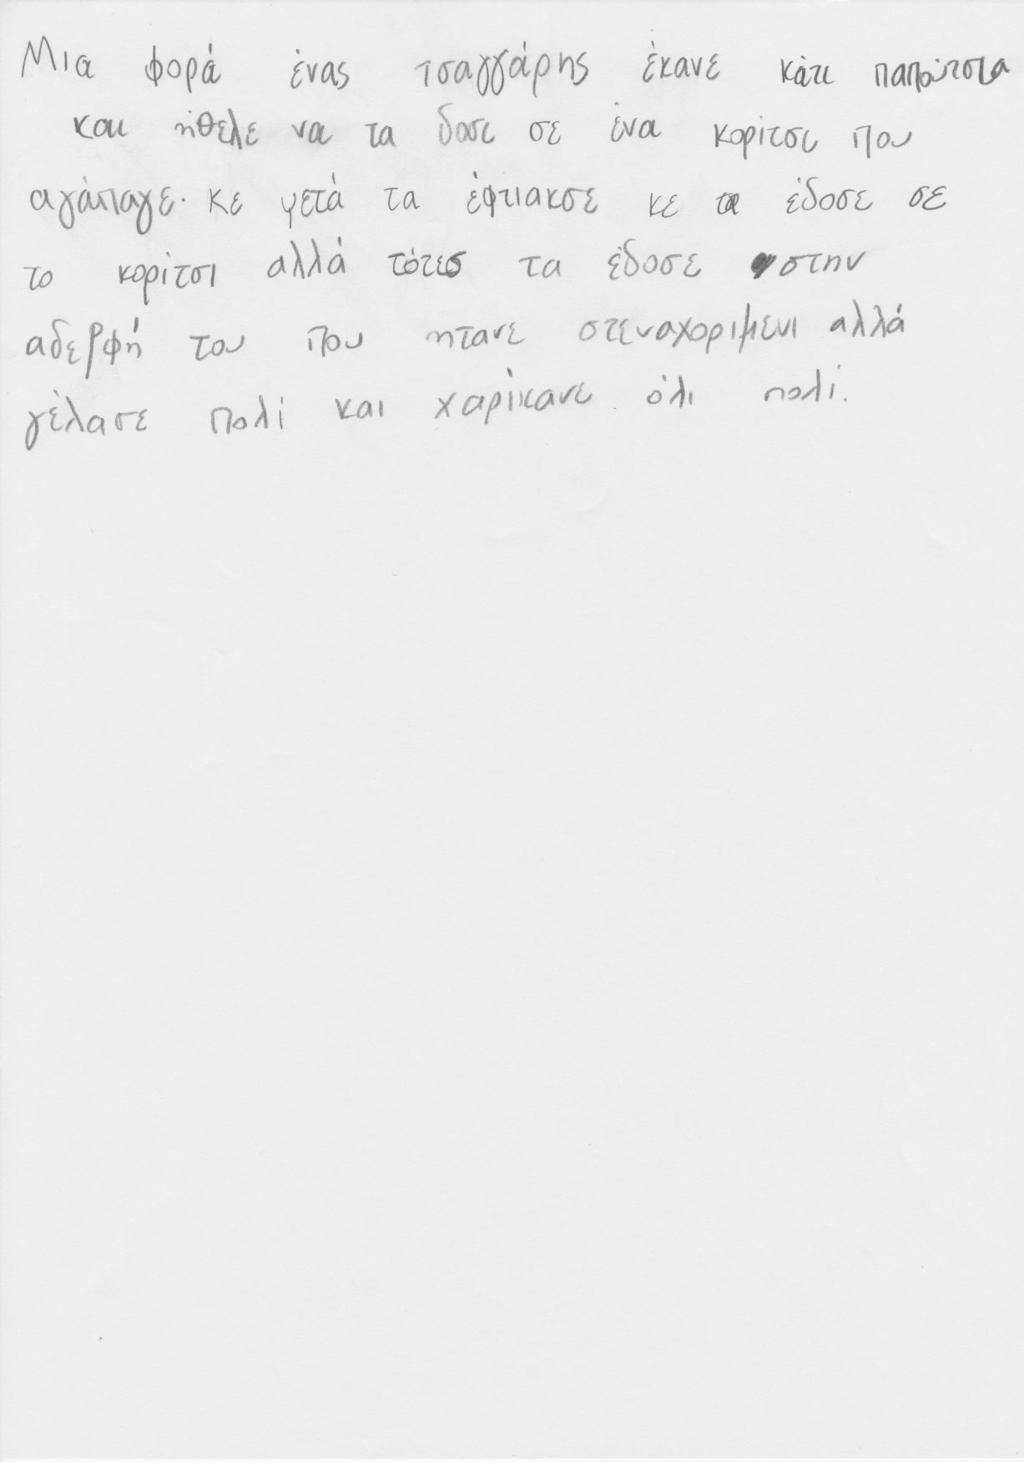 Μια φορά ένας τσαγγάρης έκανε κάτι παπούτστα
και ήθελε να τα δοσι σε ένα κορίτσι που
αγάπαγε. κε μετά τα έφτιακσε κε τα έδοσε σε
το κορίτσι αλλά τότες τα έδοσε στην
αδερφή του που ητανε στεναχοριμενι αλλά
γέλασε πολί και χαρίκανε όλι πολί.